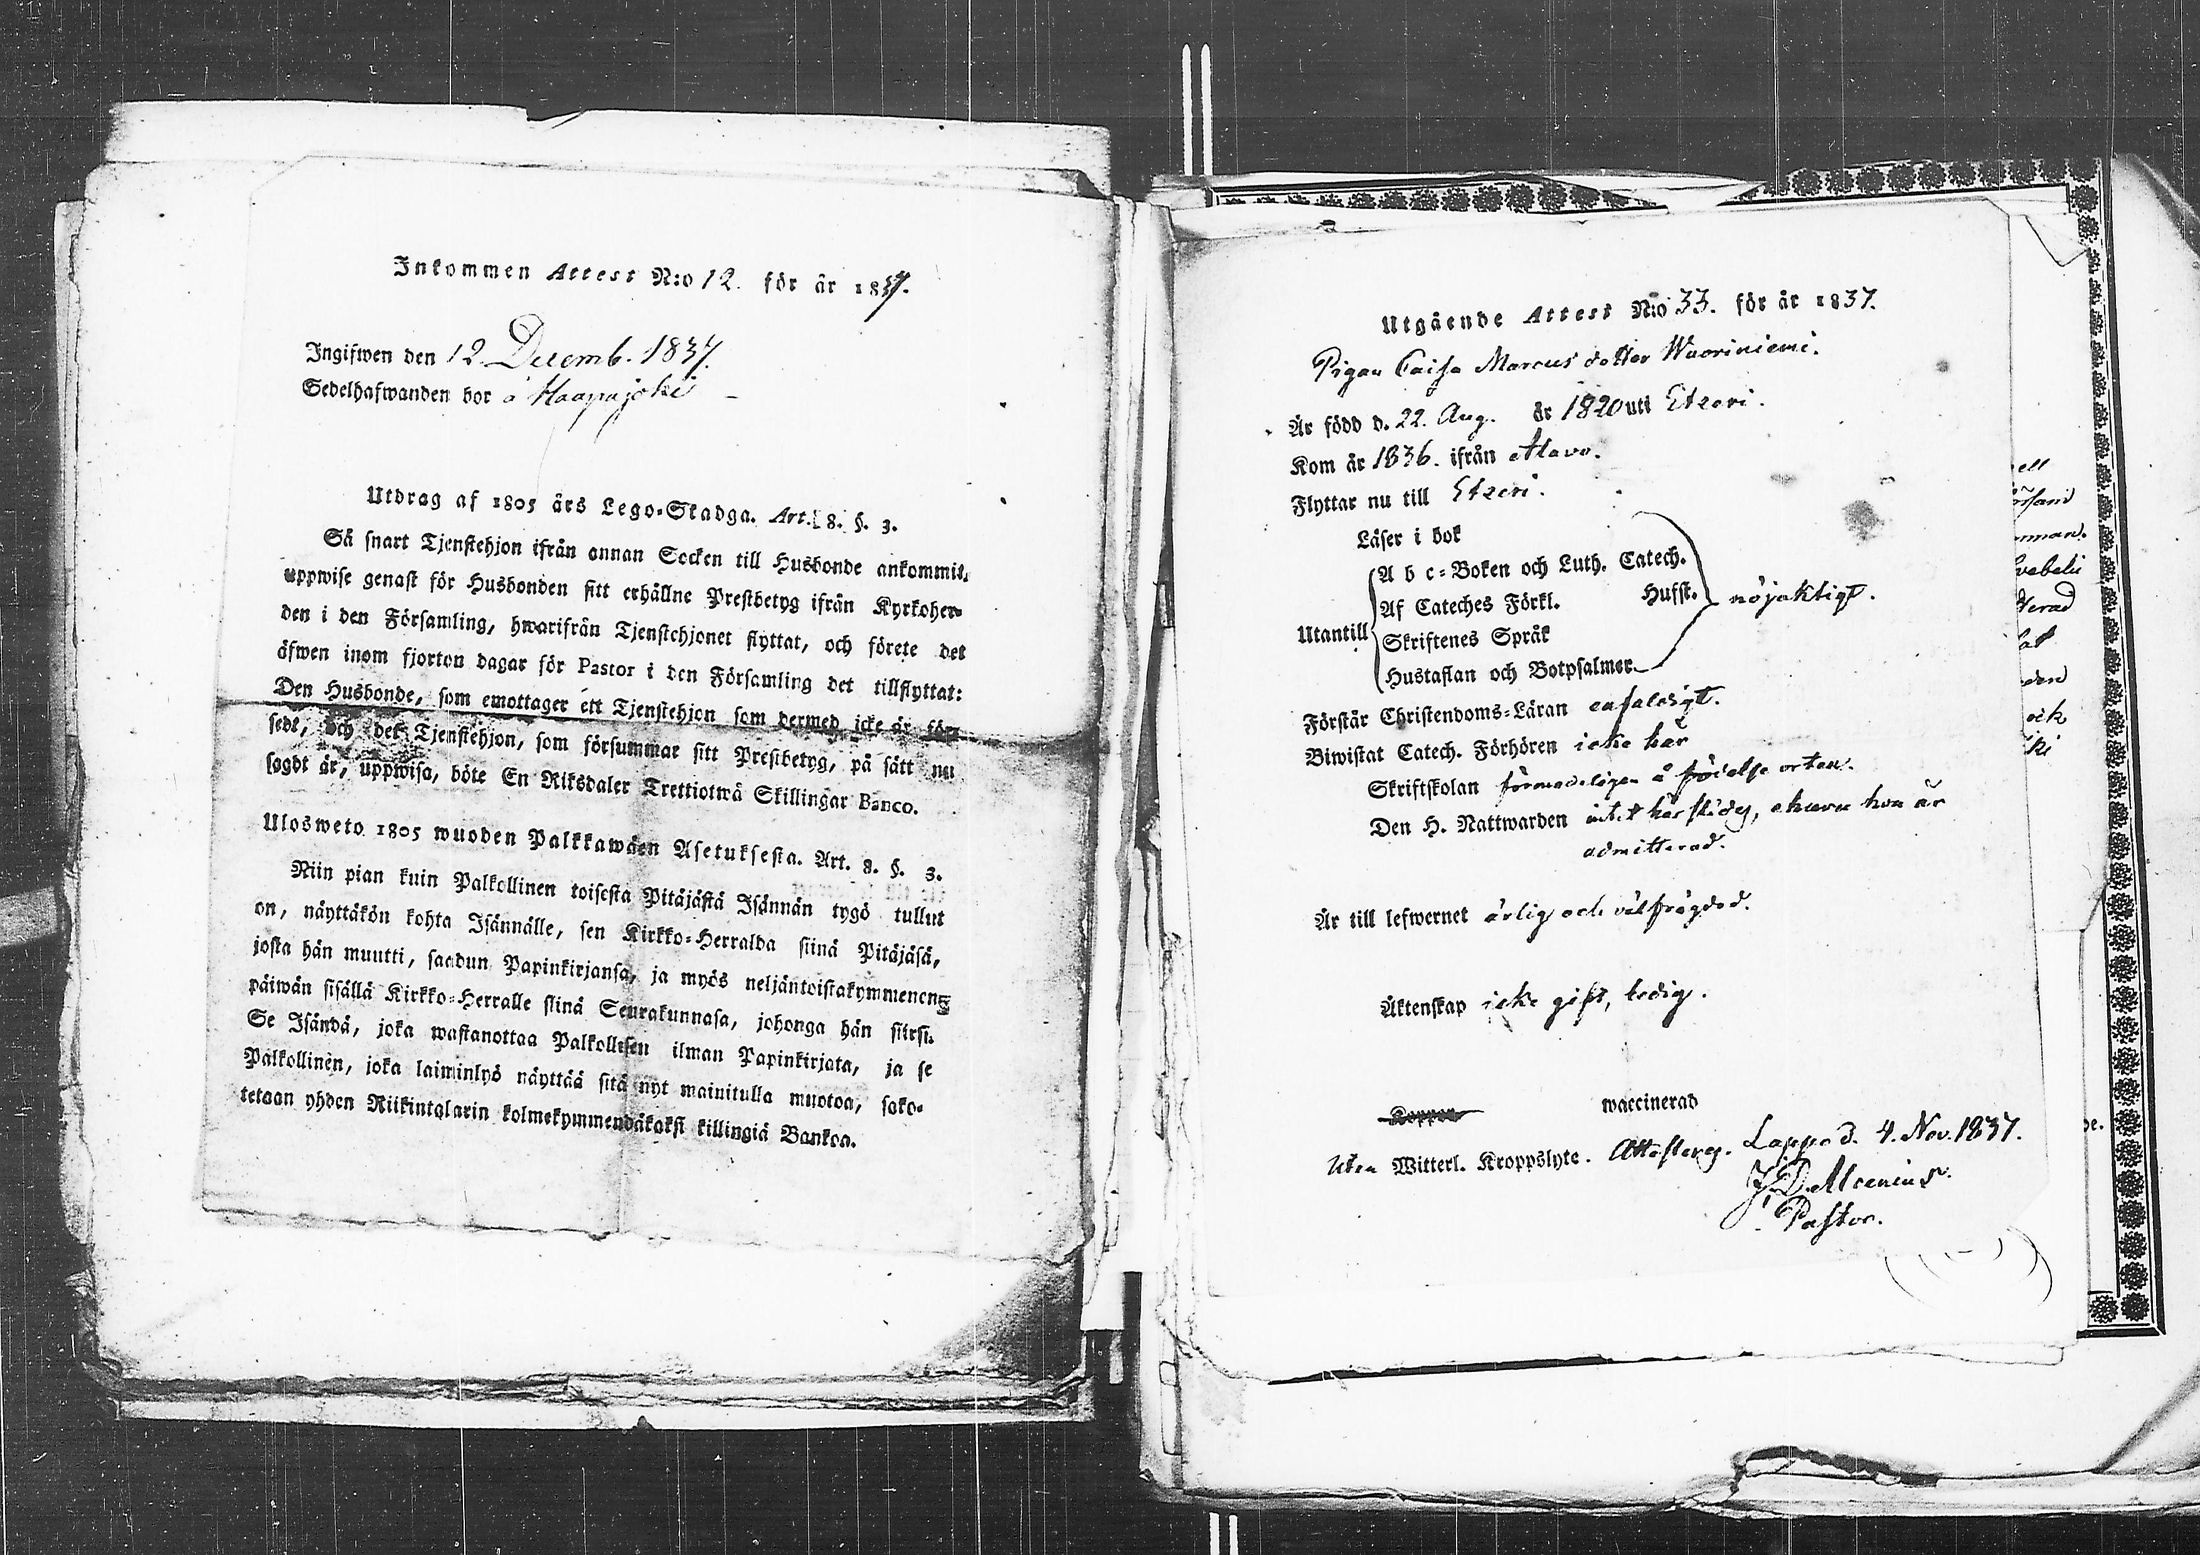 Inkommen Attest N:o 12. för år 1837.
Ingifwen den 12 Decemb. 1837.
Sedelhafwanden bor å Haapajoki
Utdrag af 1805 års Lego-Stadga. Art. 8. §. 3.
Så snart Tjenstehjon ifrån annan Socken till Husbonde ankommit,
uppwise genast för Husbonden sitt erhållne Prestbetyg ifrån Kyrkoher-
den i den Församling, hwarifrån Tjenstehjonet flyttat, och förete det
äfwen inom fjorton dagar för Pastor i den Församling det tillflyttat:
Den Husbonde, som emottager ett Tjenstehjon som dermed icke är för-
sedt, och det Tjenstehjon, som försummar sitt Prestbetyg, på sätt nu
sagdt är, uppwisa, böte En Riksdaler Trettiotwå Skillingar Banco.
Ulosweto 1805 wuoden Palkkawäen Asetuksesta. Art. 8. §. 3.
Niin pian kuin Palkollinen toisesta Pitäjästä Isännän tygö tullut
on, näyttäkön kohta Isännälle, sen Kirkko-Herralda siinä Pitäjäsä,
josta hän muutti, saadun Papinkirjansa, ja myös neljäntoistakymmenen
päiwän sisällä Kirkko-Herralle siinä Seurakunnasa, johonga hän siirsi.
Se Isändä, joka wastanottaa Palkollisen ilman Papinkirjata, ja se
Palkollinen, joka laiminlyö näyttää sitä nyt mainitulla muotoa, sako-
tetaan yhden Riikintalarin kolmekymmendäkaksi killingiä Bankoa.
Utgående Attest N:o 33. för år 1837.
Pigan Caisa Marcus dotter Wuoriniemi.
Är född d. 22. Aug. år 1820 uti Etzeri.
Kom år 1836. ifrån Alavo.
Flyttar nu till Etzeri.
Läser i bok
A b c-Boken och Luth. Catech.
Af Cateches Förkl. Hufst. nöjaktigt.
Utantill Skriftenes Språk
Hustaflan och Botpsalmer
Förstår Christendoms-Läran enfaldigt.
Biwistat Catech. Förhören icke här
Skriftskolan förmodeligen å födelse orten.
Den H. Nattwarden intet här städes, ehuru hon är
admitterad.
Är till lefwernet ärlig och välfrägdad.
Äktenskap icke gift, ledig.
Koppor waccinerad
Utan Witterl. Kroppslyte. Attesteras. Lappo d. 4. Nov. 1837.
J. D. Alcenius.
Pastor.